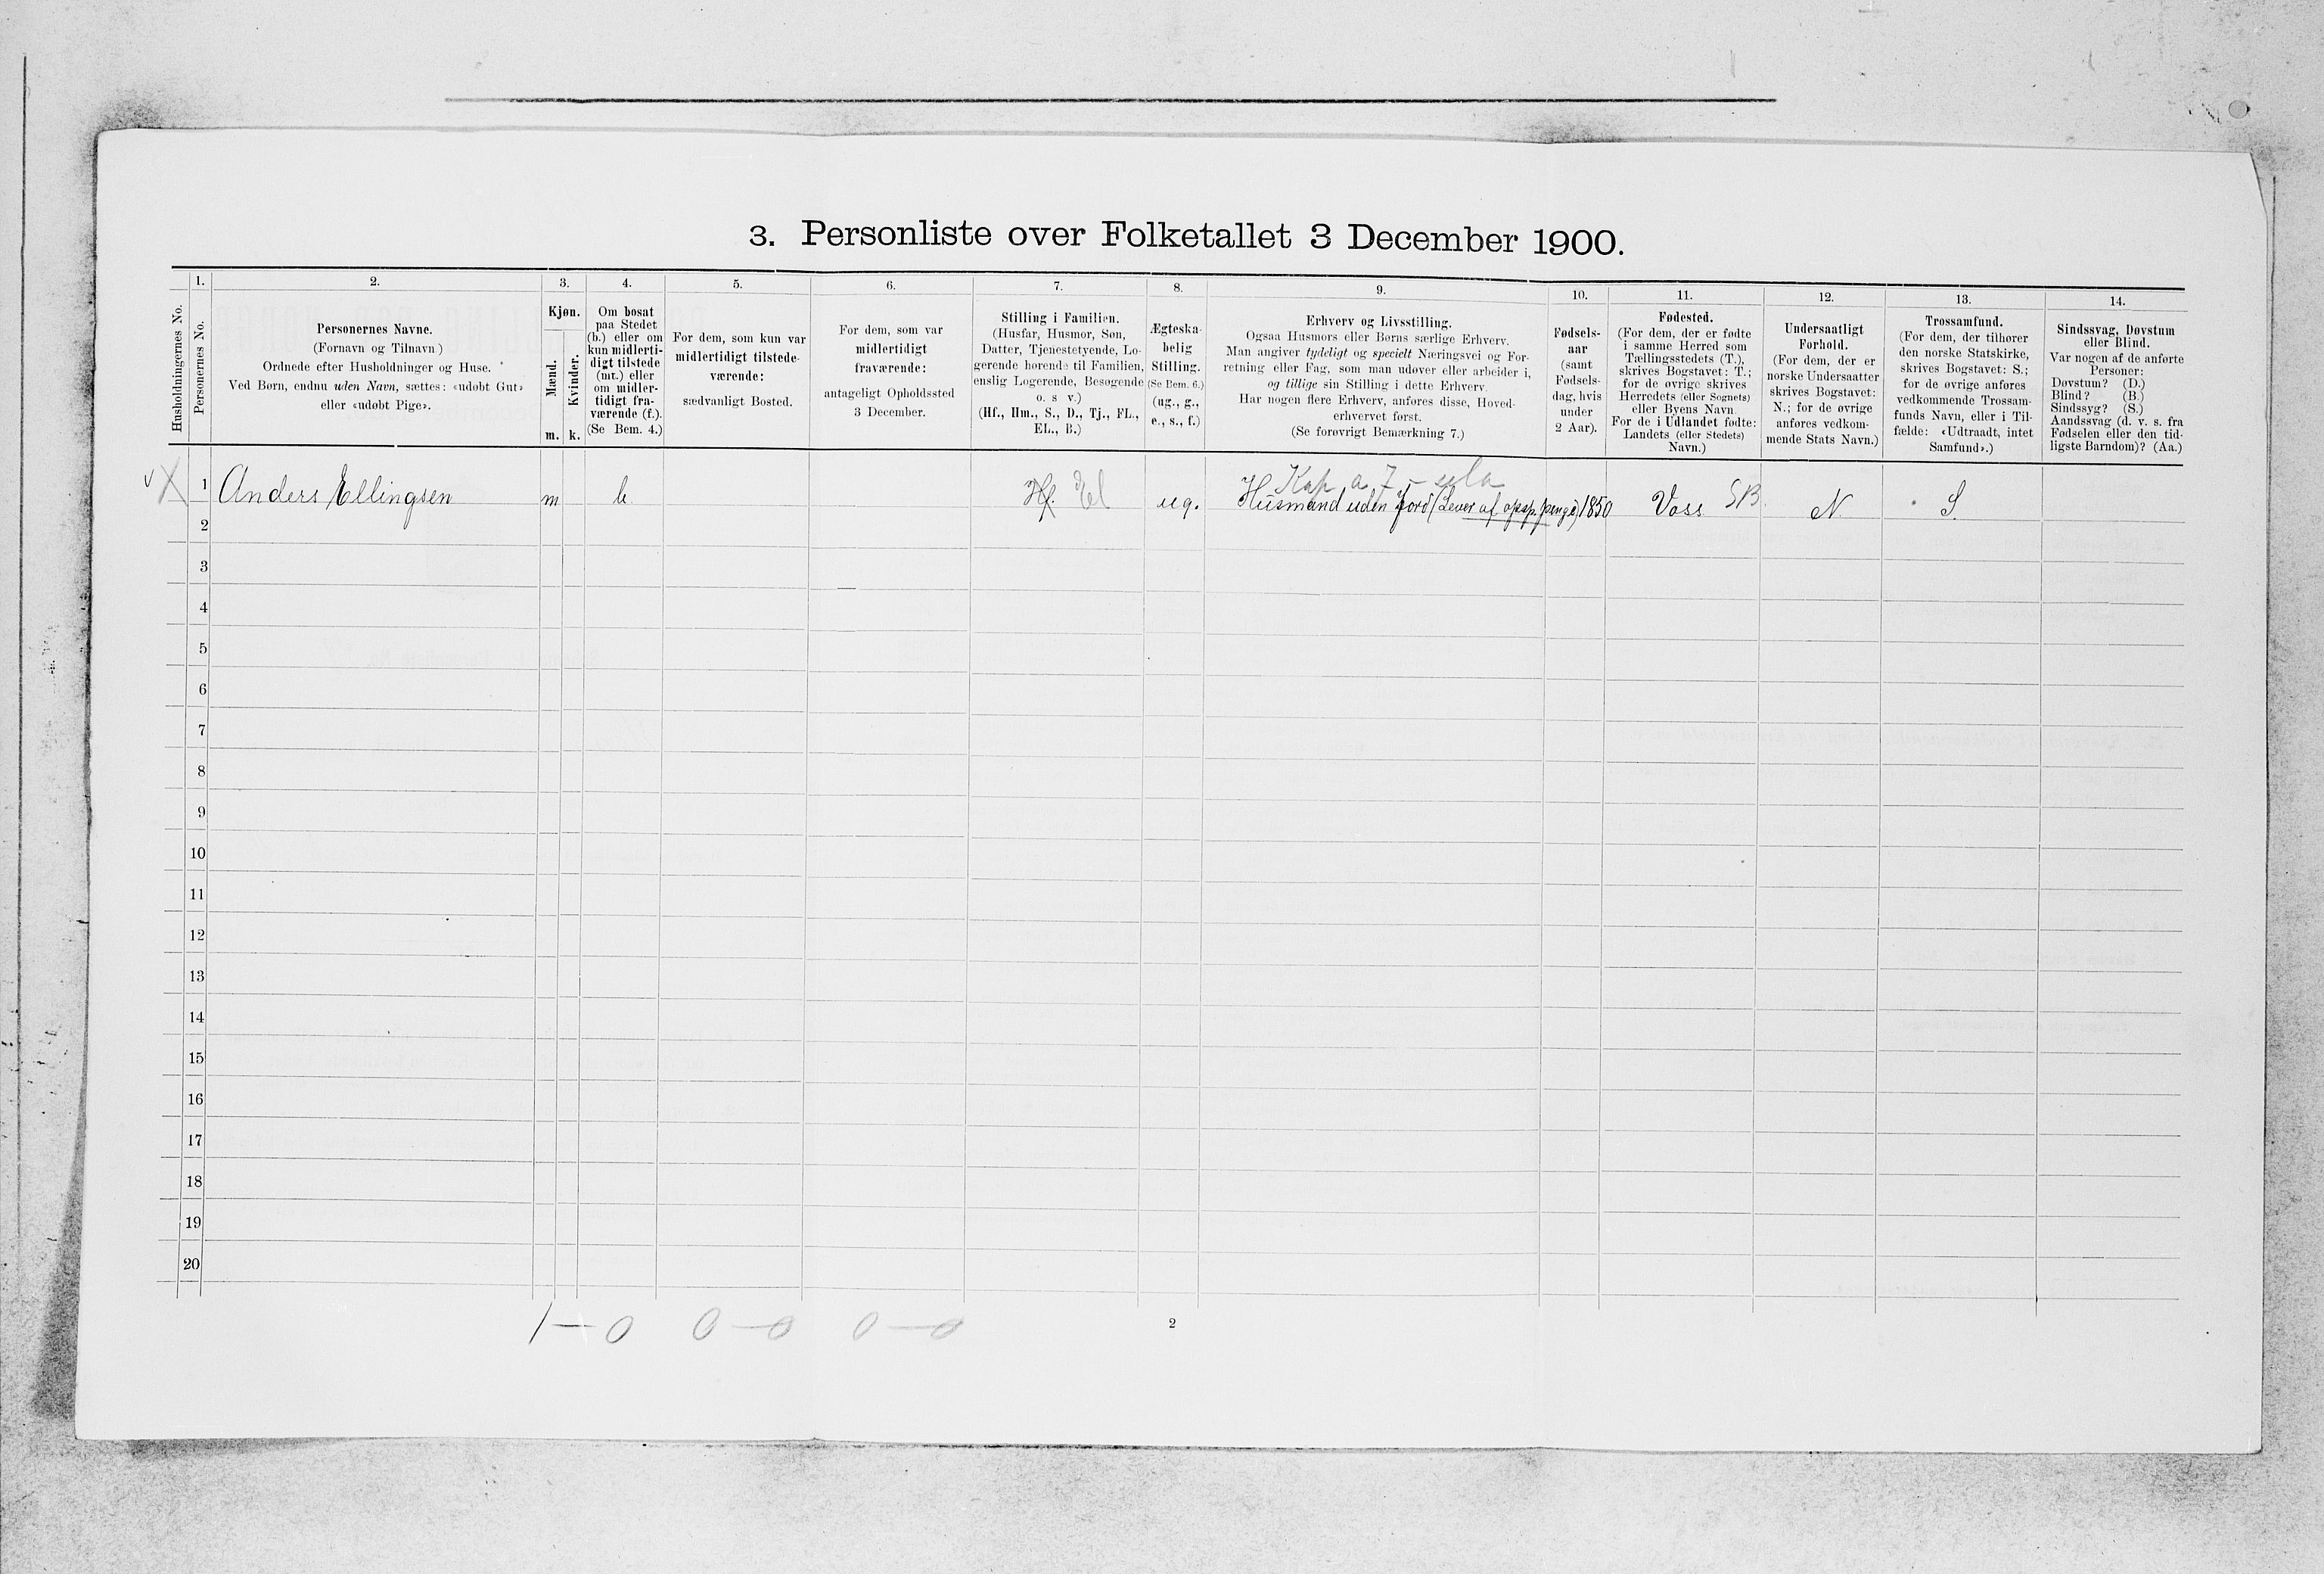 3. Personliste over Folketallet 3 December 1900.
Husholdningernes No.
1.
Personernes No.
2.
Personernes Navne.
(Fornavn og Tilnavn)
Ordnede efter Husholdninger og Huse.
Ved Børn, endnu uden Navn, sættes: «udøbt Gut»
eller «udøbt Pige».
3.
Kjøn.
Mænd.
Kvinder.
m. k.
4.
Om bosat
paa Stedet
(b.) eller om
kun midlerti-
digt tilstede
(mt.) eller
om midler-
tidigt fra-
værende (f.).
(Se Bem. 4.)
5.
For dem, som kun var
midlertidigt tilstede-
værende:
sædvanligt Bosted.
6.
For dem, som var
midlertidigt
fraværende:
antageligt Opholdssted
3 December.
7.
Stilling i Familien.
(Husfar, Husmor, Søn,
Datter, Tjenestetyende, Lo-
gerende hørende til Familien,
enslig Logerende, Besøgende
o. s v.)
(Hf., Hm., S., D., Tj., FL.,
EL., B.)
8.
Ægteska-
belig
Stilling.
(Se Bem. 6.)
(ug., g.,
e., s., f.)
9.
Erhverv og Livsstilling.
Ogsaa Husmors eller Børns særlige Erhverv.
Man angiver tydeligt og specielt Næringsvei og For-
retning eller Fag, som man udøver eller arbeider i,
og tillige sin Stilling i dette Erhverv.
Har nogen flere Erhverv, anføres disse, Hoved-
erhvervet først.
(Se forøvrigt Bemærkning 7.)
10.
Fødsels-
aar
(samt
Fødsels-
dag, hvis
under
2 Aar).
11.
Fødested.
(For dem, der er fødte
i samme Herred som
Tællingsstedets (T.),
skrives Bogstavet: T.;
for de øvrige skrives
Herredets (eller Sognets)
eller Byens Navn.
For de i Udlandet fødte:
Landets (eller Stedets)
Navn.)
12.
Undersaatligt
Forhold.
(For dem, der er
norske Undersaatter
skrives Bogstavet:
N.; for de øvrige
anføres vedkom-
mende Stats Navn.)
13.
Trossamfund.
(For dem, der tilhører
den norske Statskirke,
skrives Bogstavet: S.;
for de øvrige anføres
vedkommende Trossam-
funds Navn, eller i Til-
fælde: «Udtraadt, intet
Samfund».)
14.
Sindssvag, Døvstum
eller Blind.
Var nogen af de anførte
Personer:
Døvstum? (D.)
Blind? (B.)
Sindssyg? (S.)
Aandssvag (d. v. s. fra
Fødselen eller den tid-
ligste Barndom)? (Aa.)
Kap a 7
1 Anders Ellingsen m b. Hf. El ug. Husmand uden Jord (Lever af opsp. penge) 1850 Voss SB. N. S.
2
3
4
5
6
7
8
9
10
11
12
13
14
15
16
17
18
19
20
1—0 0—0 0—0
2